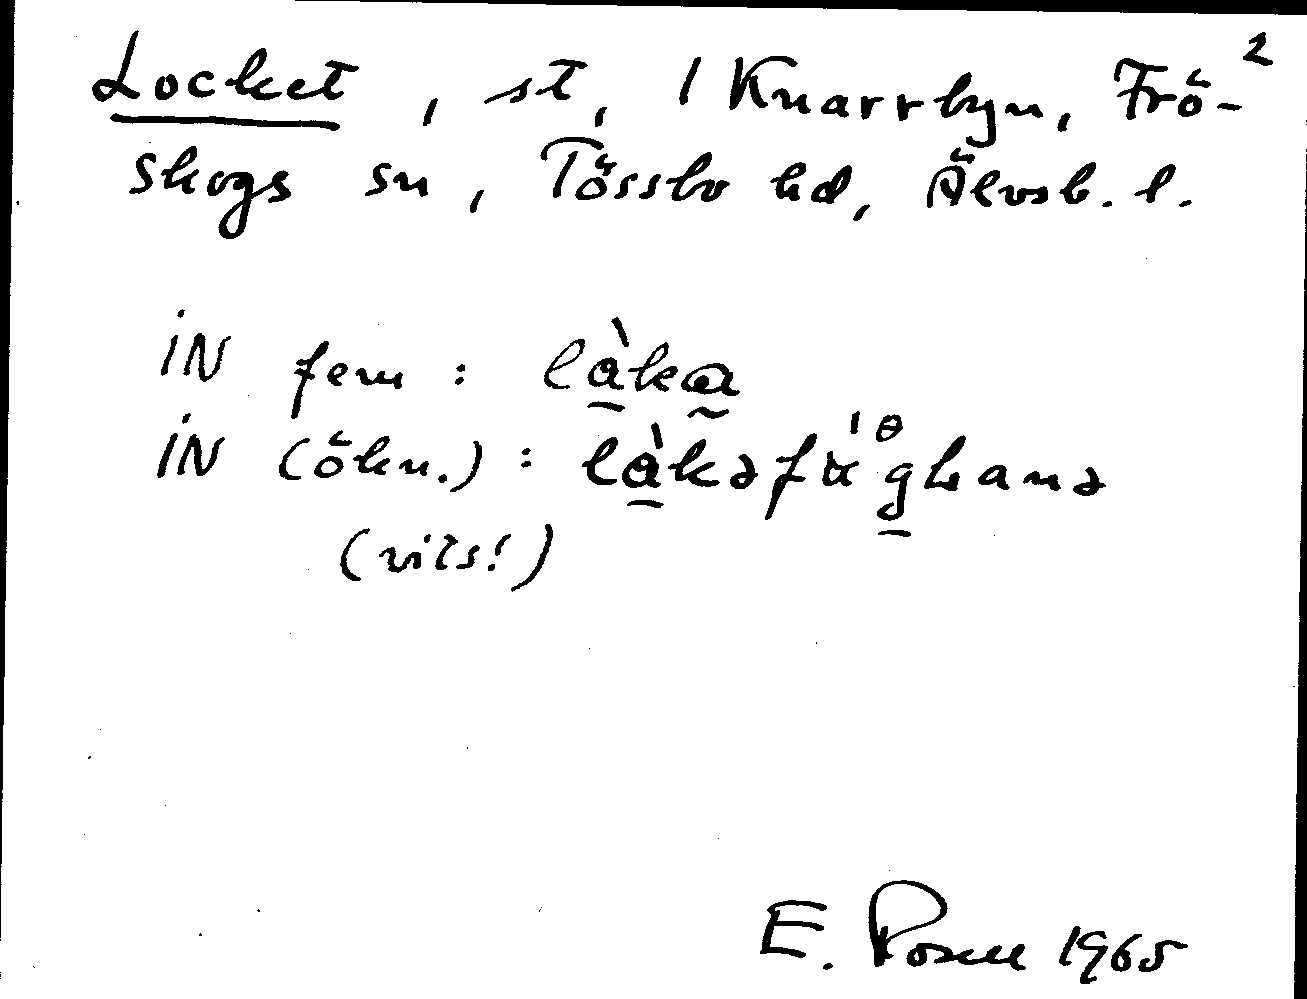 2
Locket, st, 1 Knarrbyn, Frö-
skogs sn, Tössbo hd, Älvsb. l.
iN fem : làka
iN (ökn.) :
(vits!)
E. Rosell 1965